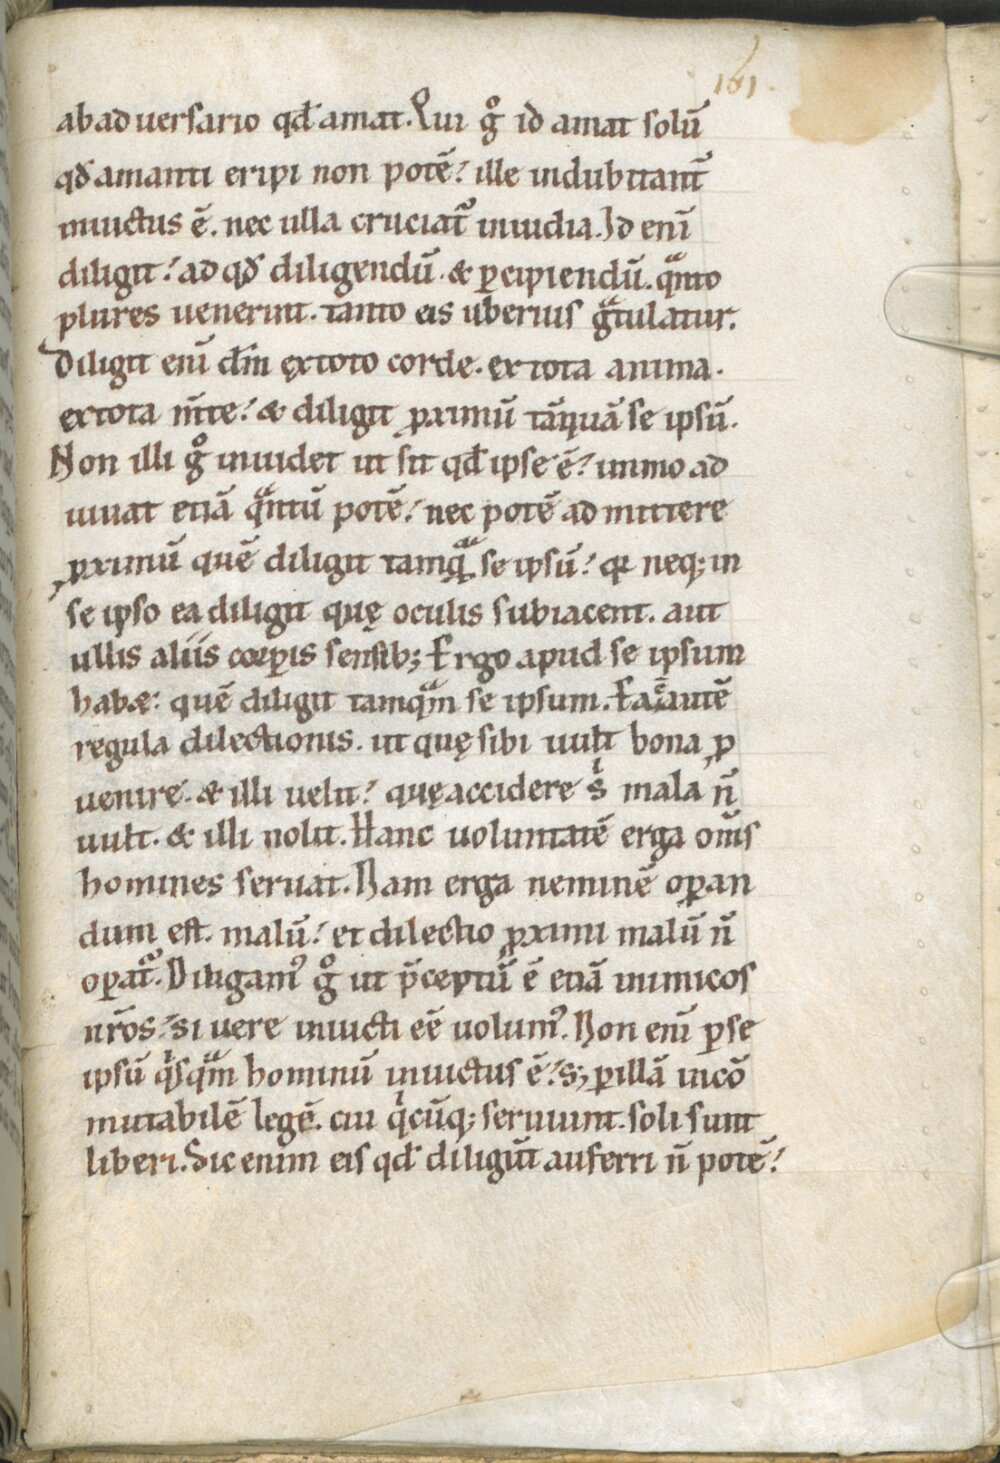 161.
ab aduersario qd̄ amat. Qui g̊ id amat solū
qd̄ amanti eripi non potē? ille indubitant̄
inuictus ē. nec ulla cruciat᷑ inuidia. Id eni̅
diligit? ad qd̄ diligendū. & ꝑcipiendū. qͣnto
plures uenerint. tanto eis uberius gͣtulatur.
Diligit eni̅ dm̄ ex toto corde. ex tota anima.
ex tota m̄te? & diligit ꝓximū tā quā se ipsū.
Non illi g̊ inuidet ut sit qd̄ ipse ē? immo ad
iuuat etiā qͣntū potē? nec potē admittere
ꝓximū quē diligit tamqͣ se ipsū? qꝛ neq; in
se ipso ea diligit quę oculis subiacent. aut
ullis aliis corꝑis sensib; Ergo apud se ipsum
habæ: quē diligit tamqͣm se ipsum. Ea ē autē
regula dilectionis. ut quę sibi uult bona ꝓ
uenire. & illi uelit? quę accidere sⁱ mala n̄
uult. & illi nolit. Hanc uoluntatē erga om̄s
homines seruat. Nam erga neminē oꝑan
dum est. malū? et dilectio ꝓximi malū n̄
oꝑat᷑. Diligam᾽ g̊ ut p̄ceptū ē etiā inimicos
nr̄os? si uere inuicti eē uolum᾽. Non eni̅ ꝑ se
ipsū qⁱsqͣm hominū inuictus ē? s; ꝑ illā incō
mutabilē legē. cui qⁱcūq; seruiunt. soli sunt
liberi. Sic enim eis qd̄ diligūt auferri n̄ potē?